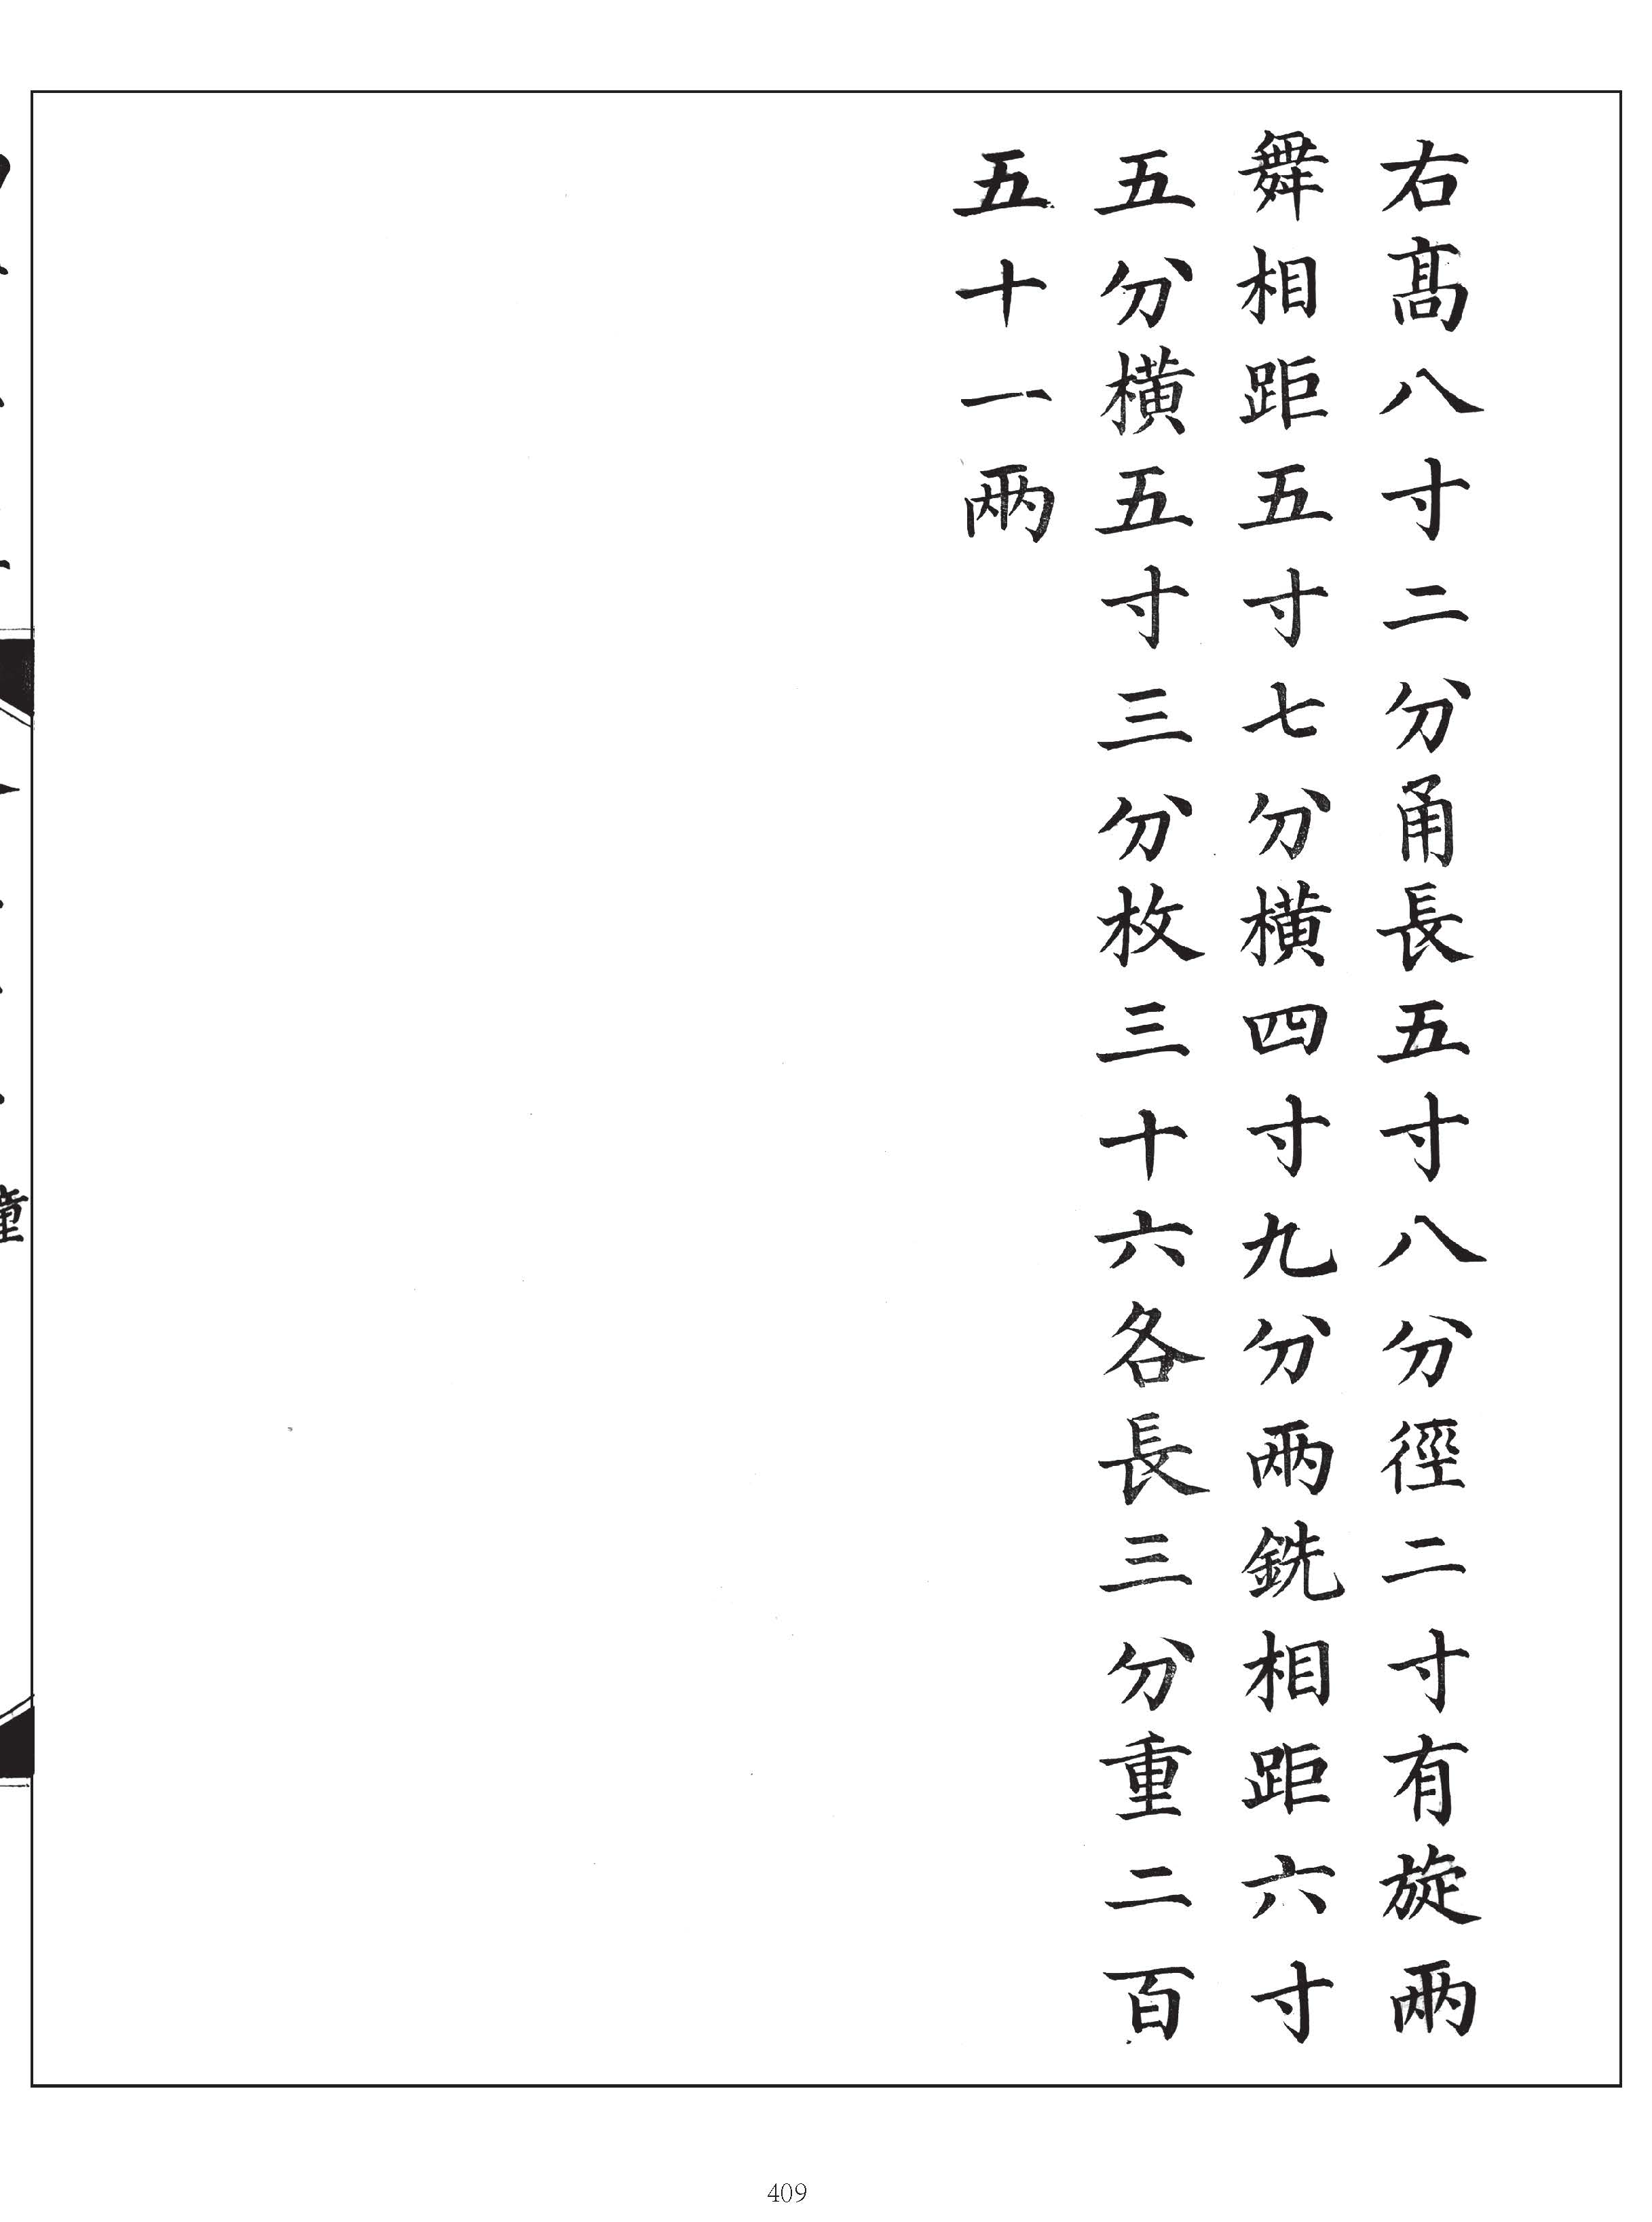 右髙八寸二分甬長五寸八分徑二寸有旋兩
舞相距五寸七分橫四寸九分兩銑相距六寸
五分橫五寸三分枚三十六各長三分重二百
五十一兩
409